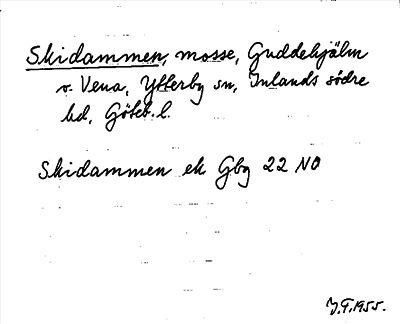 Skidammen, mosse, Guddehjälm
v. Vena, Ytterby sn, Inlands södre
hd, Göteb. l.
Skidammen ek Gbg 22 NO
J.F. 1955.